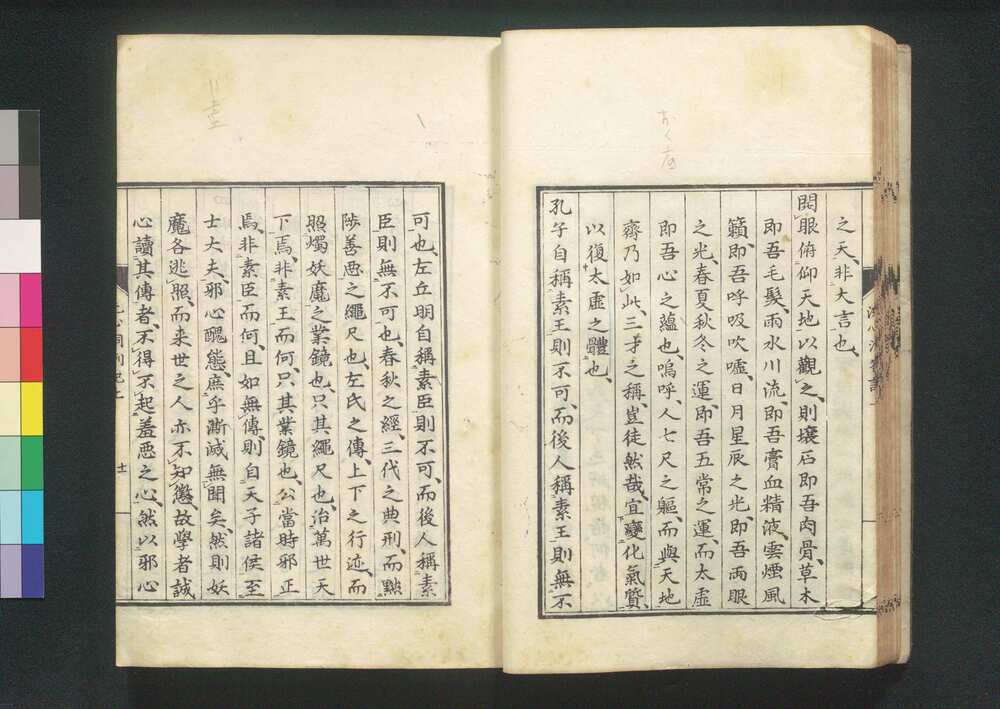 之天、非大言也、
開眼俯仰天地以觀之、則壤石即吾肉骨、草木
即吾毛髮、雨水川流、即吾膏血精液、雲煙風
籟、即吾呼吸吹噓、日月星辰之光、即吾兩眼
之光、春夏秋冬之運、即吾五常之運、而太虛
即吾心之蘊也、嗚呼、人七尺之軀、而與天地
齊乃如此、三才之稱、豈徒然哉、宜變化氣質、
以復太虛之體也、
孔子自稱素王則不可、而後人稱素王則無不
可也、左丘明自稱素臣則不可、而後人稱素
臣則無不可也、春秋之經、三代之典刑、而黜
陟善惡之繩尺也、左氏之傳、上下之行迹、而
照燭妖魔之業鏡也、只其繩尺也、治萬世天
下焉、非素王而何、只其業鏡也、公當時邪正
焉、非素臣而何、且如無傳、則自天子諸侯至
士大夫、邪心醜態、庶乎漸滅無聞矣、然則妖
魔各逃照、而来世之人亦不知懲、故學者誠
心讀其傳者、不得不起羞惡之心、然以邪心